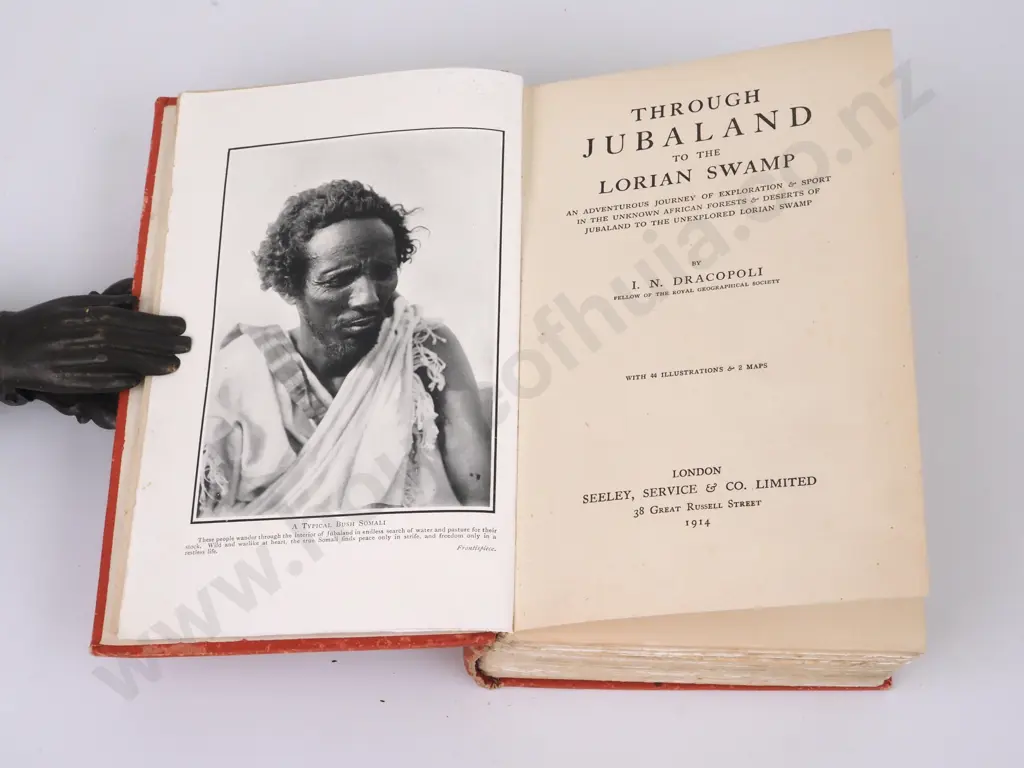 A TYPICAL BUSH SOMALI
These people wander through the interior of Jubaland in endless search of water and pasture for their
stock. Wild and warlike at heart, the true Somali finds peace only in strife, and freedom only in a
restless life.
Frontispiece.
THROUGH
JUBALAND
TO THE
LORIAN SWAMP
AN ADVENTUROUS JOURNEY OF EXPLORATION & SPORT
IN THE UNKNOWN AFRICAN FORESTS & DESERTS OF
JUBALAND TO THE UNEXPLORED LORIAN SWAMP
BY
I. N. DRACOPOLI
FELLOW OF THE ROYAL GEOGRAPHICAL SOCIETY
WITH 44 ILLUSTRATIONS & 2 MAPS
LONDON
SEELEY, SERVICE & CO. LIMITED
38 GREAT RUSSELL STREET
1914
www.houseofhuia.co.nz